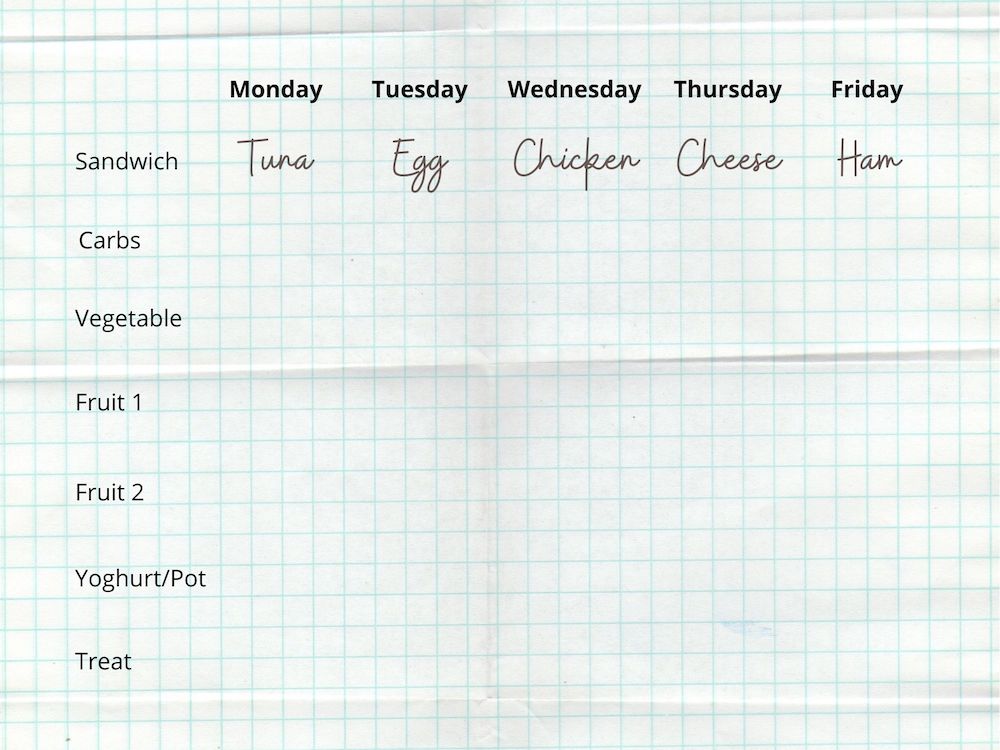 Monday Tuesday Wednesday Thursday Friday
Sandwich Tuna Egg Chicken Cheese Ham
Carbs
Vegetable
Fruit 1
Fruit 2
Yoghurt/Pot
Treat